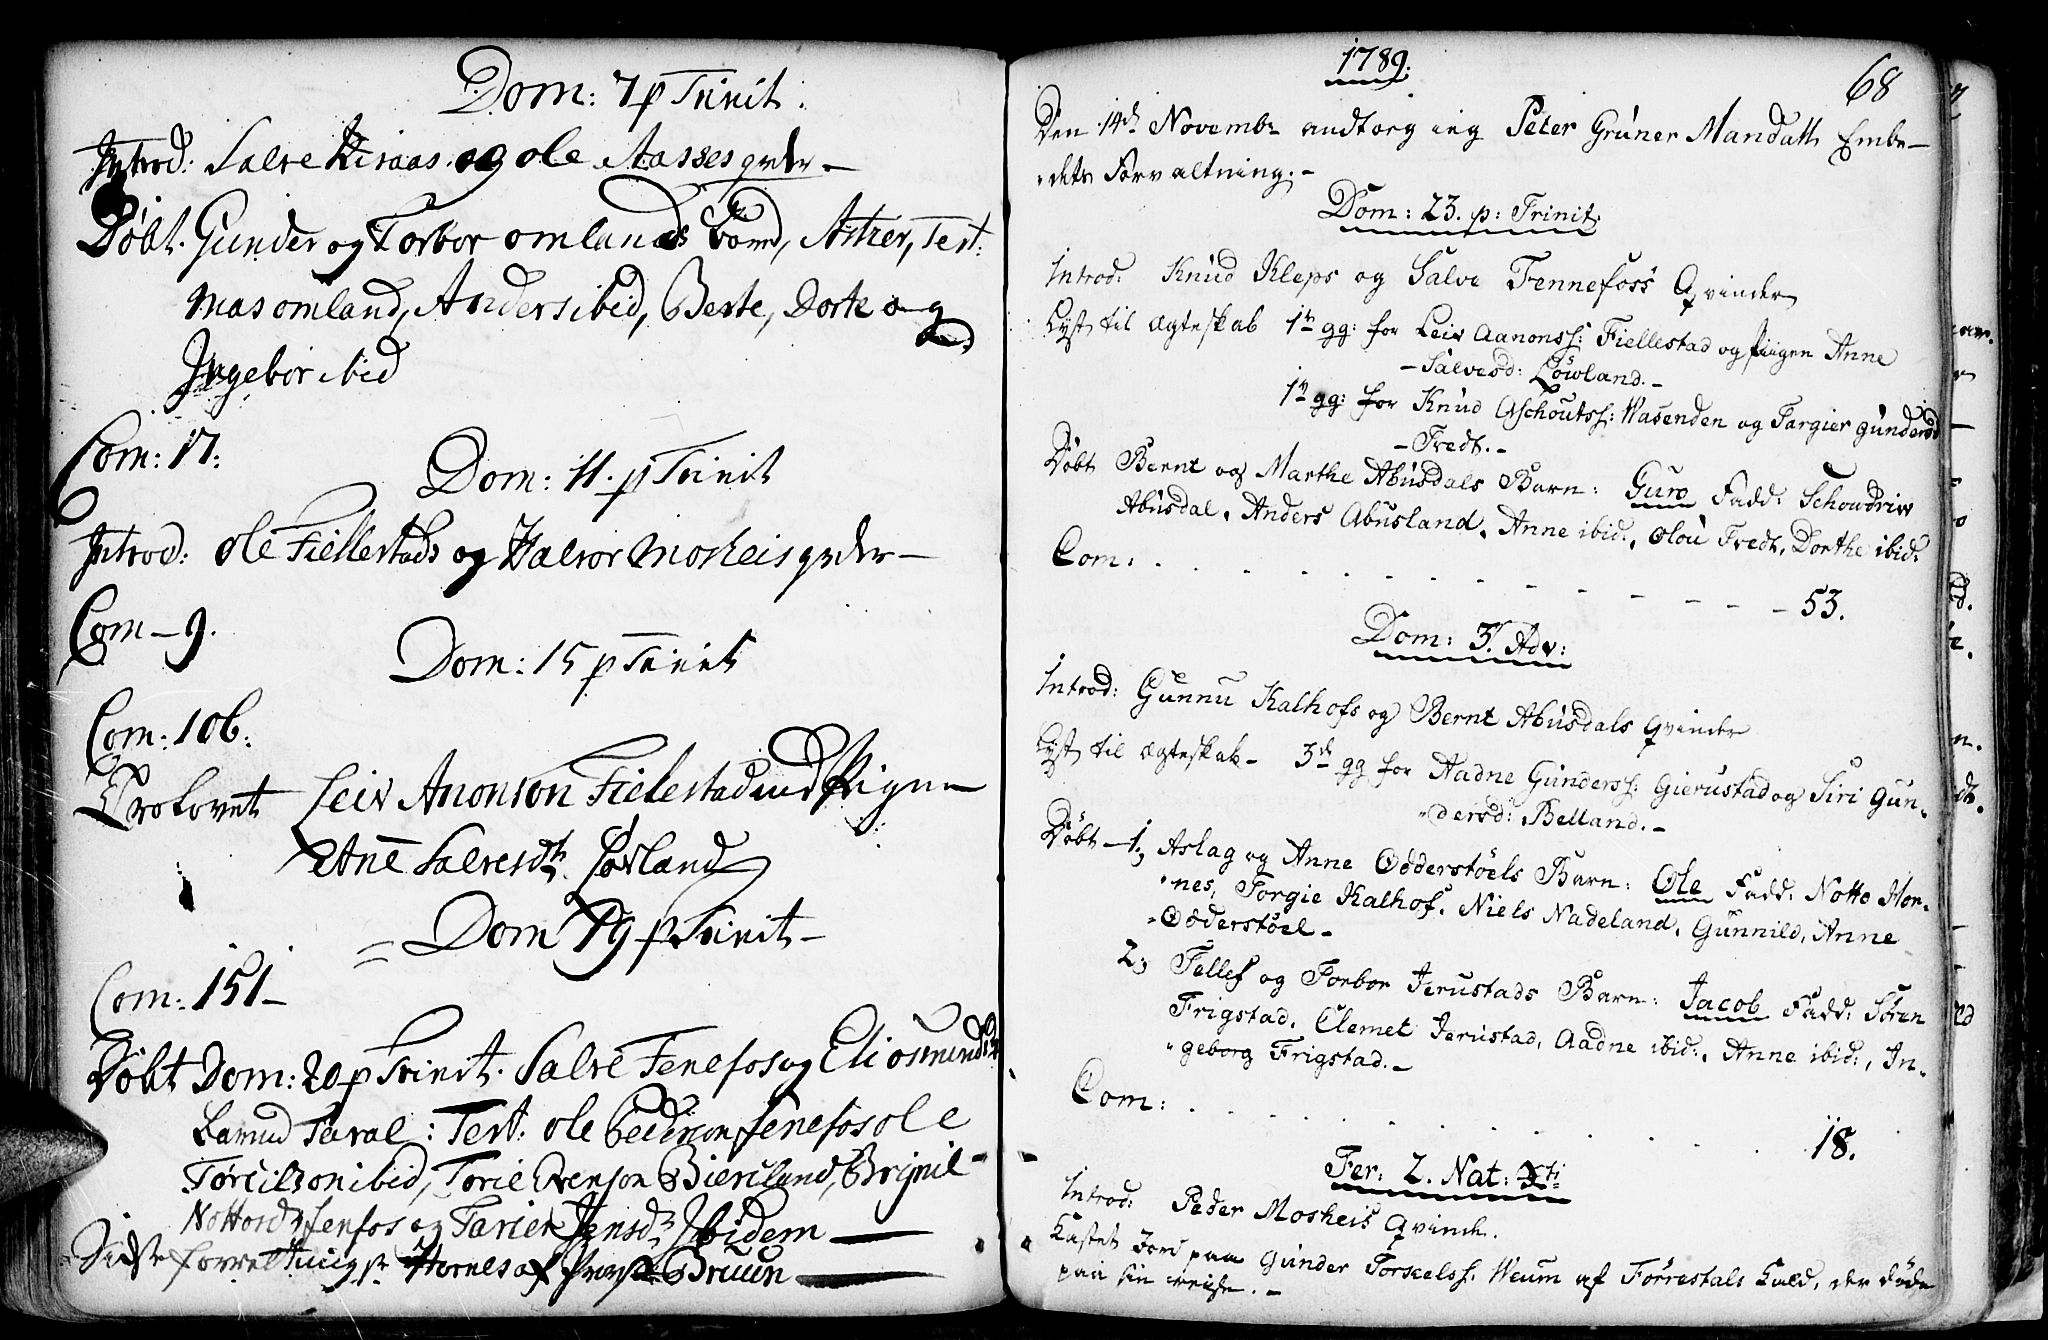 Dom: 7 p Trinit:
Introd: Salve Kiraas og Ole Aasses qvder –
Døbt. Gunder og Torbor Omlands barn, Astrer, Test:
Mas Omland, Anders ibid, Berte, Dorte og
Ingebor ibid
Com: 17:
Dom: 11. p Trinit
Introd: Ole Fiellestads og Halvor Moskeis qvder –
Com – 9.
Dom: 15 p Trinit
Com: 106:
Trolovet Leiv Anonson Fielestad med Pigen
Ane Salvesdtr Løvland
Dom 19 p Trinit –
Com: 151 –
Døbt Dom: 20 p Trinit. Salve Fenefos og Eli
Barn Taral: Test: Ole Pederson Fenefos Ole
Torcilson ibid, Torie Evenson Bierland,
Nottosdr Fenfos og Tarier Jensdr Ibidem –
Sidste Forretning i Hornes af Bruun –
1789.
68
Den 14de Novembr andtog ieg Peter Grüner Mandals Embe–
dets Forvaltning. –
Dom: 23. p: Trinit:
Introd: Knud Kleps og Salve Fennefoss Qvinder
Lyst til Ægteskab 1te gg: for Leiv Aanonss: Fiellestad og Piigen Anne
– Salvesd: Løwland. –
1te gg: for Knud Aschoutss: Wasenden og Targier Gundersd
– Tredt. –
Døbt Bernt og Marthe Abusdals Barn: Guro Fadd: Schoudriw
Abusdal, Anders Abusland, Anne ibid:, Olou Tredt, Dorthe ibid:
Com: . . . . . . . . . . – – – 53.
Dom: 3. Adv:
Introd: Gunnu Kalhofs og Bernt Abusdals Qvinder
Lyst til Ægteskab – 3de gg for Aadne Gunderss: Gierustad og Siri Gun-
dersd: Belland. –
Døbt – 1, Aslag og Anne Odderstøels Barn: Ole Fadd: Notto Hor-
nes, Torgie Kalhof, Niels Nadeland, Gunnild, Anne
Odderstøel –
2, Tellef og Torbor Jerustads Barn: Jacob Fadd: Søren
Frigstad, Clemet Jerustad, Aadne ibid:, Anne ibid:, In-
geborg Frigstad. –
Com: . . . . . . . . . . 18.
Fer: 2. Nat: Xti
Introd: Peder Moskeis Qvinde.
Kastet Jord paa Gunder Torkelss: Weum af Torrestals Kuld, der døde
paa sin reise. –